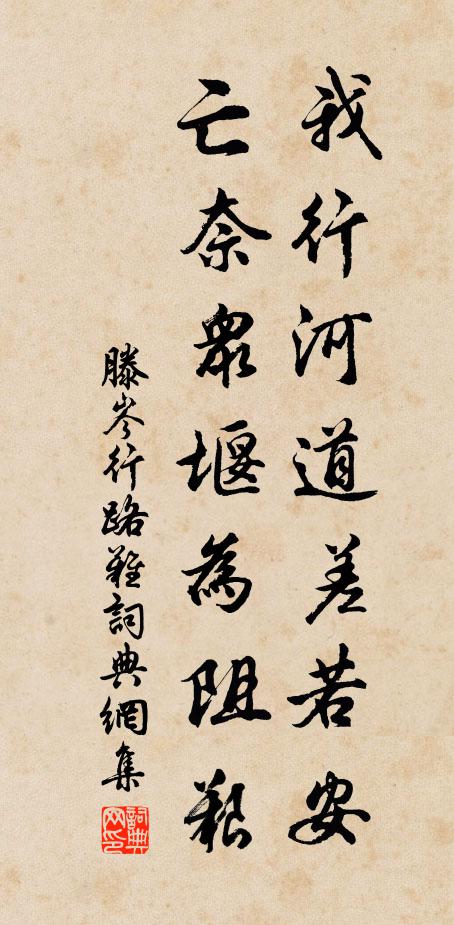 我行河道差若安
亡奈眾堰為阻艱
滕岑行路難詞典網集
詞典網印